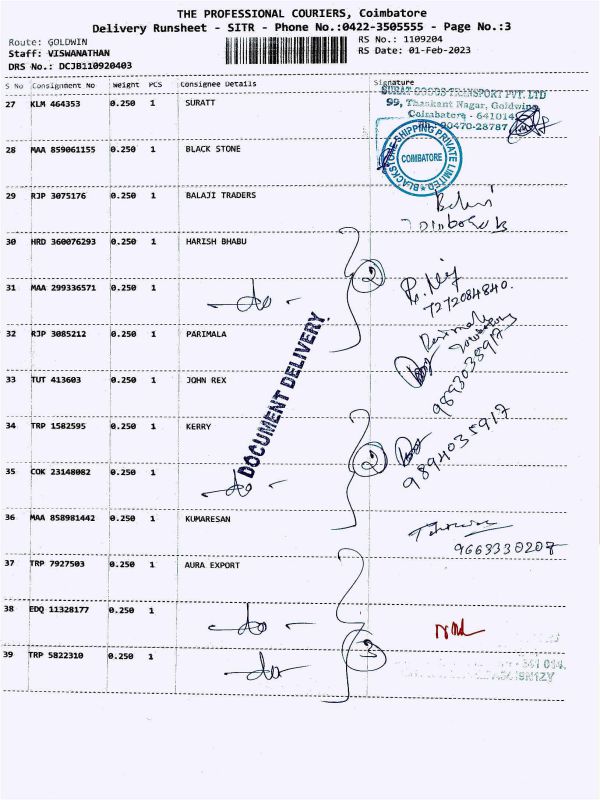 THE PROFESSIONAL COURIERS, Coimbatore
Delivery Runsheet - SITR - Phone No.:0422-3505555 - Page No.:3
Route: GOLDWIN RS No.: 1109204
Staff: VISWANATHAN RS Date: 01-Feb-2023
DRS No.: DCJB110920403
S No Consignment No Weight PCS Consignee Details Signature
SURAT GOODS TRANSPORT PVT. LTD
27 KLM 464353 0.250 1 SURATT 99, Thankant Nagar, Goldwins
Coimbatore - 641014
90470-28787
28 MAA 859061155 0.250 1 BLACK STONE
BLACKSTONE SHIPPING PRIVATE LIMITED
COIMBATORE
29 RJP 3075176 0.250 1 BALAJI TRADERS
30 HRD 360076293 0.250 1 HARISH BHABU
2
31 MAA 299336571 0.250 1 -do-
7272084840.
32 RJP 3085212 0.250 1 PARIMALA
DOCUMENT DELIVERY
33 TUT 413603 0.250 1 JOHN REX
34 TRP 1582595 0.250 1 KERRY
2
9894035917
35 COK 23148082 0.250 1 -do-
36 MAA 858981442 0.250 1 KUMARESAN
9663330207
37 TRP 7927503 0.250 1 AURA EXPORT
38 EDQ 11328177 0.250 1 -do-
3
39 TRP 5822310 0.250 1 -do-